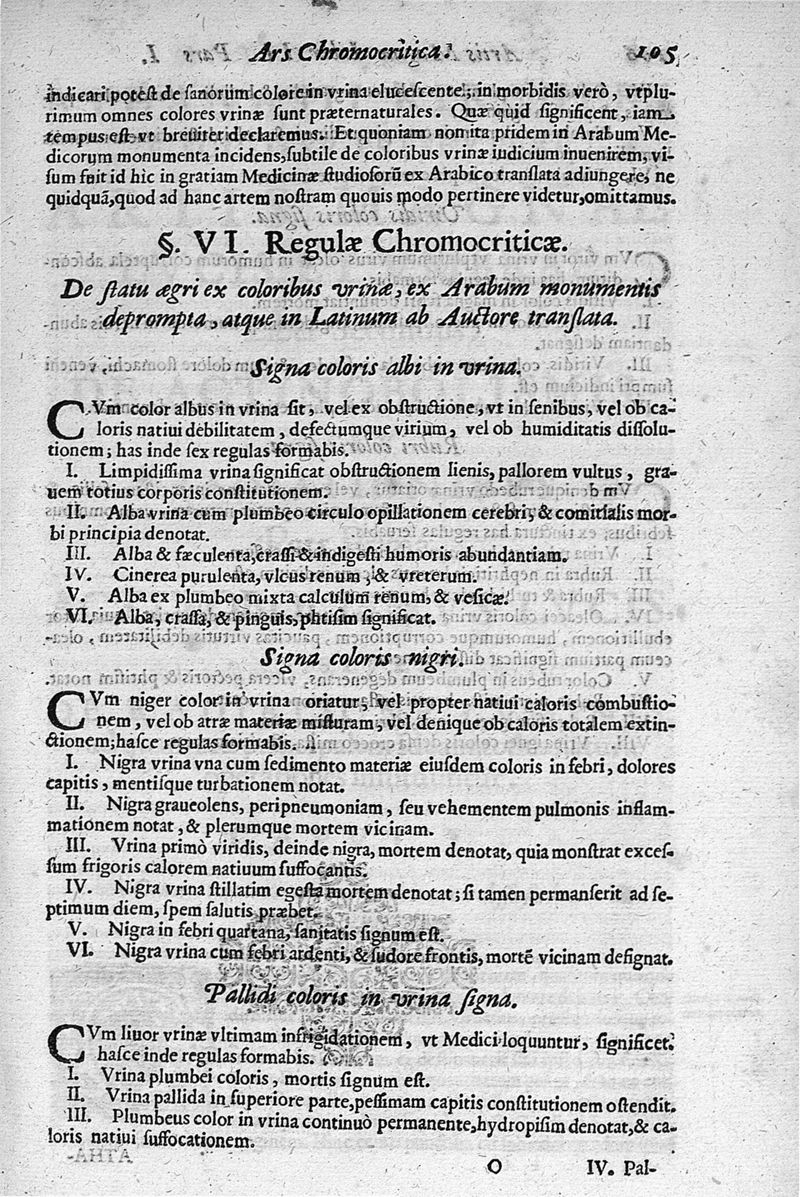 Ars Chromocritica. 105
indicari potest de sanorum colore in vrina elucescente; in morbidis verò, vtplu-
rimum omnes colores vrinæ sunt præternaturales. Quæ quid significent, iam
tempus est vt breuiter declaremus. Et quoniam non ita pridem in Arabum Me-
dicorum monumenta incidens, subtile de coloribus vrinæ iudicium inuenirem, vi-
sum fuit id hic in gratiam Medicinæ studiosorũ ex Arabico translata adiungere, ne
quidquã, quod ad hanc artem nostram quouis modo pertinere videtur, omittamus.
§. VI. Regulæ Chromocriticæ.
De statu ægri ex coloribus vrinæ, ex Arabum monumentis
deprompta, atque in Latinum ab Auctore translata.
Signa coloris albi in vrina.
CVm color albus in vrina sit, vel ex obstructione, vt in senibus, vel ob ca-
loris natiui debilitatem, defectumque virium, vel ob humiditatis dissolu-
tionem; has inde sex regulas formabis.
I. Limpidissima vrina significat obstructionem lienis, pallorem vultus, gra-
uem totius corporis constitutionem.
II. Alba vrina cum plumbeo circulo opillationem cerebri, & comitialis mor-
bi principia denotat.
III. Alba & fæculenta, crassi & indigesti humoris abundantiam.
IV. Cinerea purulenta, vlcus renum, & vreterum.
V. Alba ex plumbeo mixta calculum renum, & vesicæ.
VI. Alba, crassa, & pinguis, phtisim significat.
Signa coloris nigri.
CVm niger color in vrina oriatur, vel propter natiui caloris combustio-
nem, vel ob atræ materiæ misturam, vel denique ob caloris totalem extin-
ctionem; hasce regulas formabis.
I. Nigra vrina vna cum sedimento materiæ eiusdem coloris in febri, dolores
capitis, mentisque turbationem notat.
II. Nigra graueolens, peripneumoniam, seu vehementem pulmonis inflam-
mationem notat, & plerumque mortem vicinam.
III. Vrina primò viridis, deinde nigra, mortem denotat, quia monstrat exces-
sum frigoris calorem natiuum suffocantis.
IV. Nigra vrina stillatim egesta mortem denotat; si tamen permanserit ad se-
ptimum diem, spem salutis præbet.
V. Nigra in febri quartana, sanitatis signum est.
VI. Nigra vrina cum febri ardenti, & sudore frontis, mortẽ vicinam designat.
Pallidi coloris in vrina signa.
CVm liuor vrinæ vltimam infrigidationem, vt Medici loquuntur, significet:
hasce inde regulas formabis.
I. Vrina plumbei coloris, mortis signum est.
II. Vrina pallida in superiore parte, pessimam capitis constitutionem ostendit.
III. Plumbeus color in vrina continuò permanente, hydropisim denotat, & ca-
loris natiui suffocationem.
O IV. Pal-